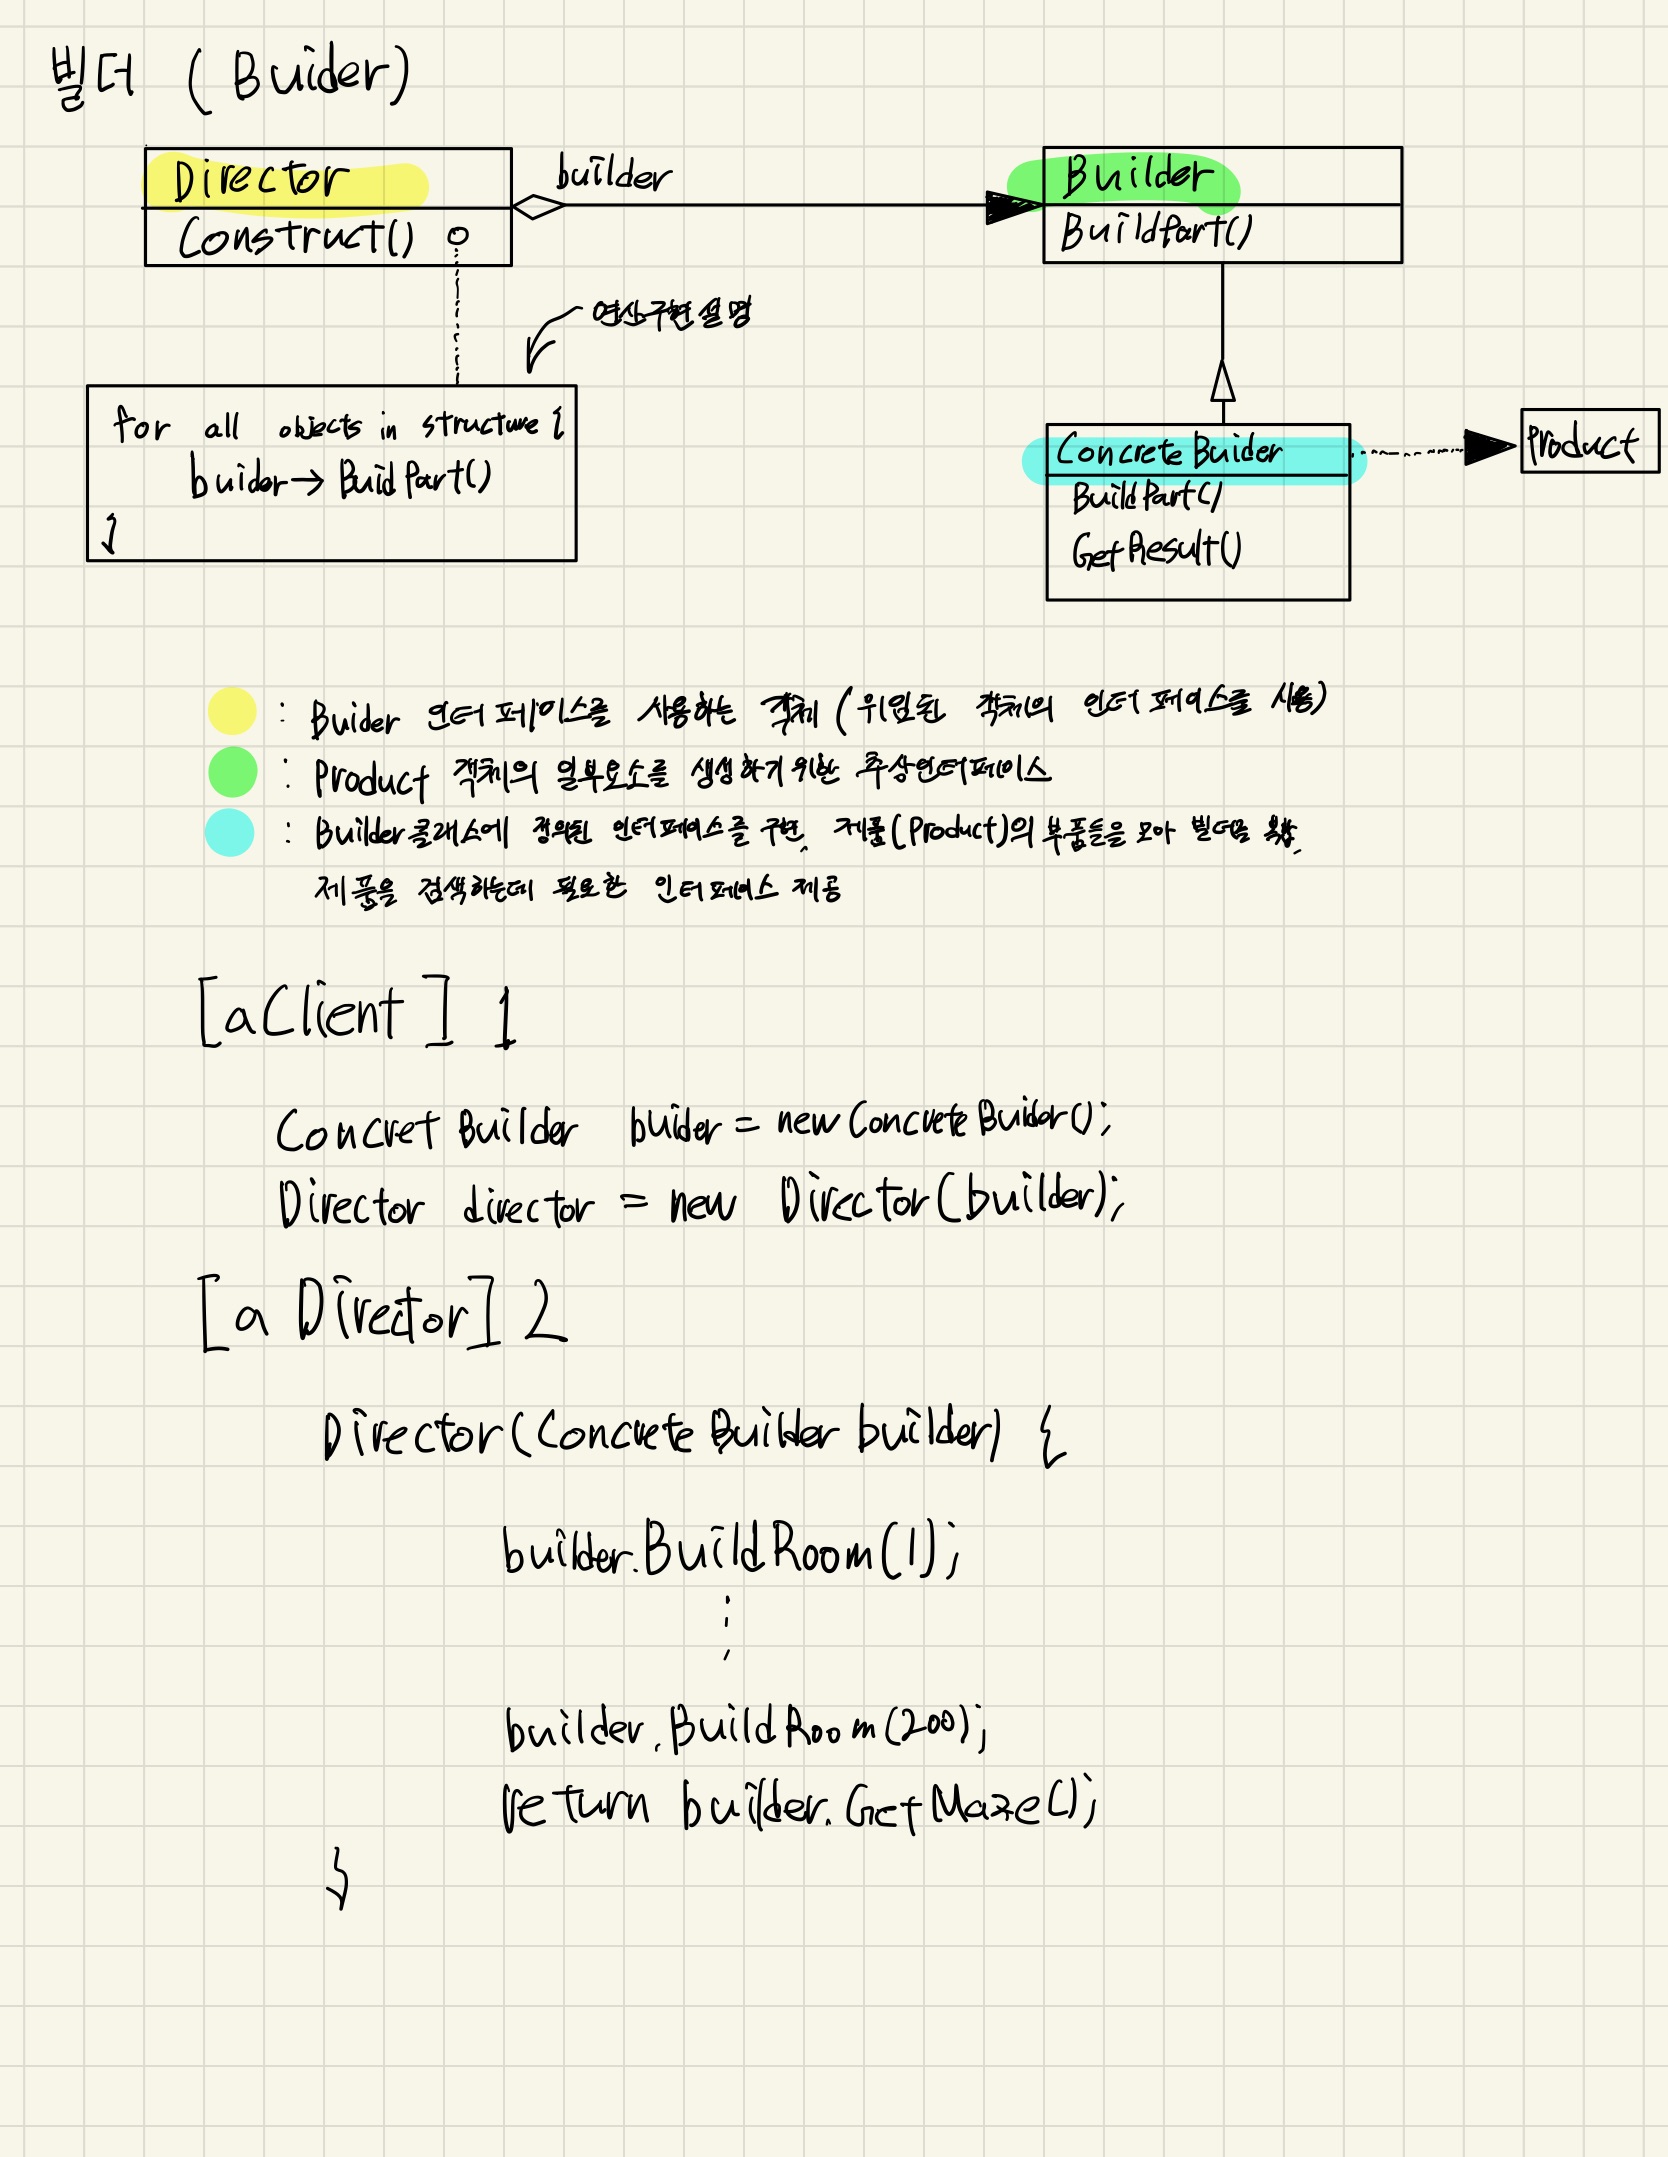 빌더 ( Buider)
Director
builder
Builder
Construct()
BuildPart()
연산구현설명
for all objects in structure {
buider→ BuidPart()
}
ConcreteBuider
Product
BuildPart()
GetResult()
: Buider 인터페이스를 사용하는 객체 (위임된 객체의 인터페이스를 사용)
: Product 객체의 일부요소를 생성하기위한 추상인터페이스
: Builder클래스에 정의된 인터페이스를 구현, 제품(Product)의 부품들을 모아 빌더를
제품을 검색하는데 필요한 인터페이스 제공
[aClient] 1
ConcretBuilder buider = new ConcreteBuider();
Director director = new Director(builder);
[a Director] 2
Director(ConcreteBuilder builder) {
builder.BuildRoom(1);
builder.BuildRoom(200);
return builder.GetMaze();
}